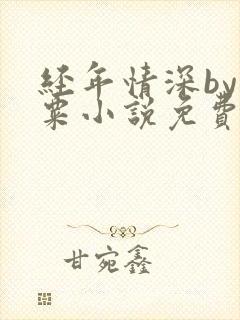 经年情深by
粟小説免費
甘宛鑫